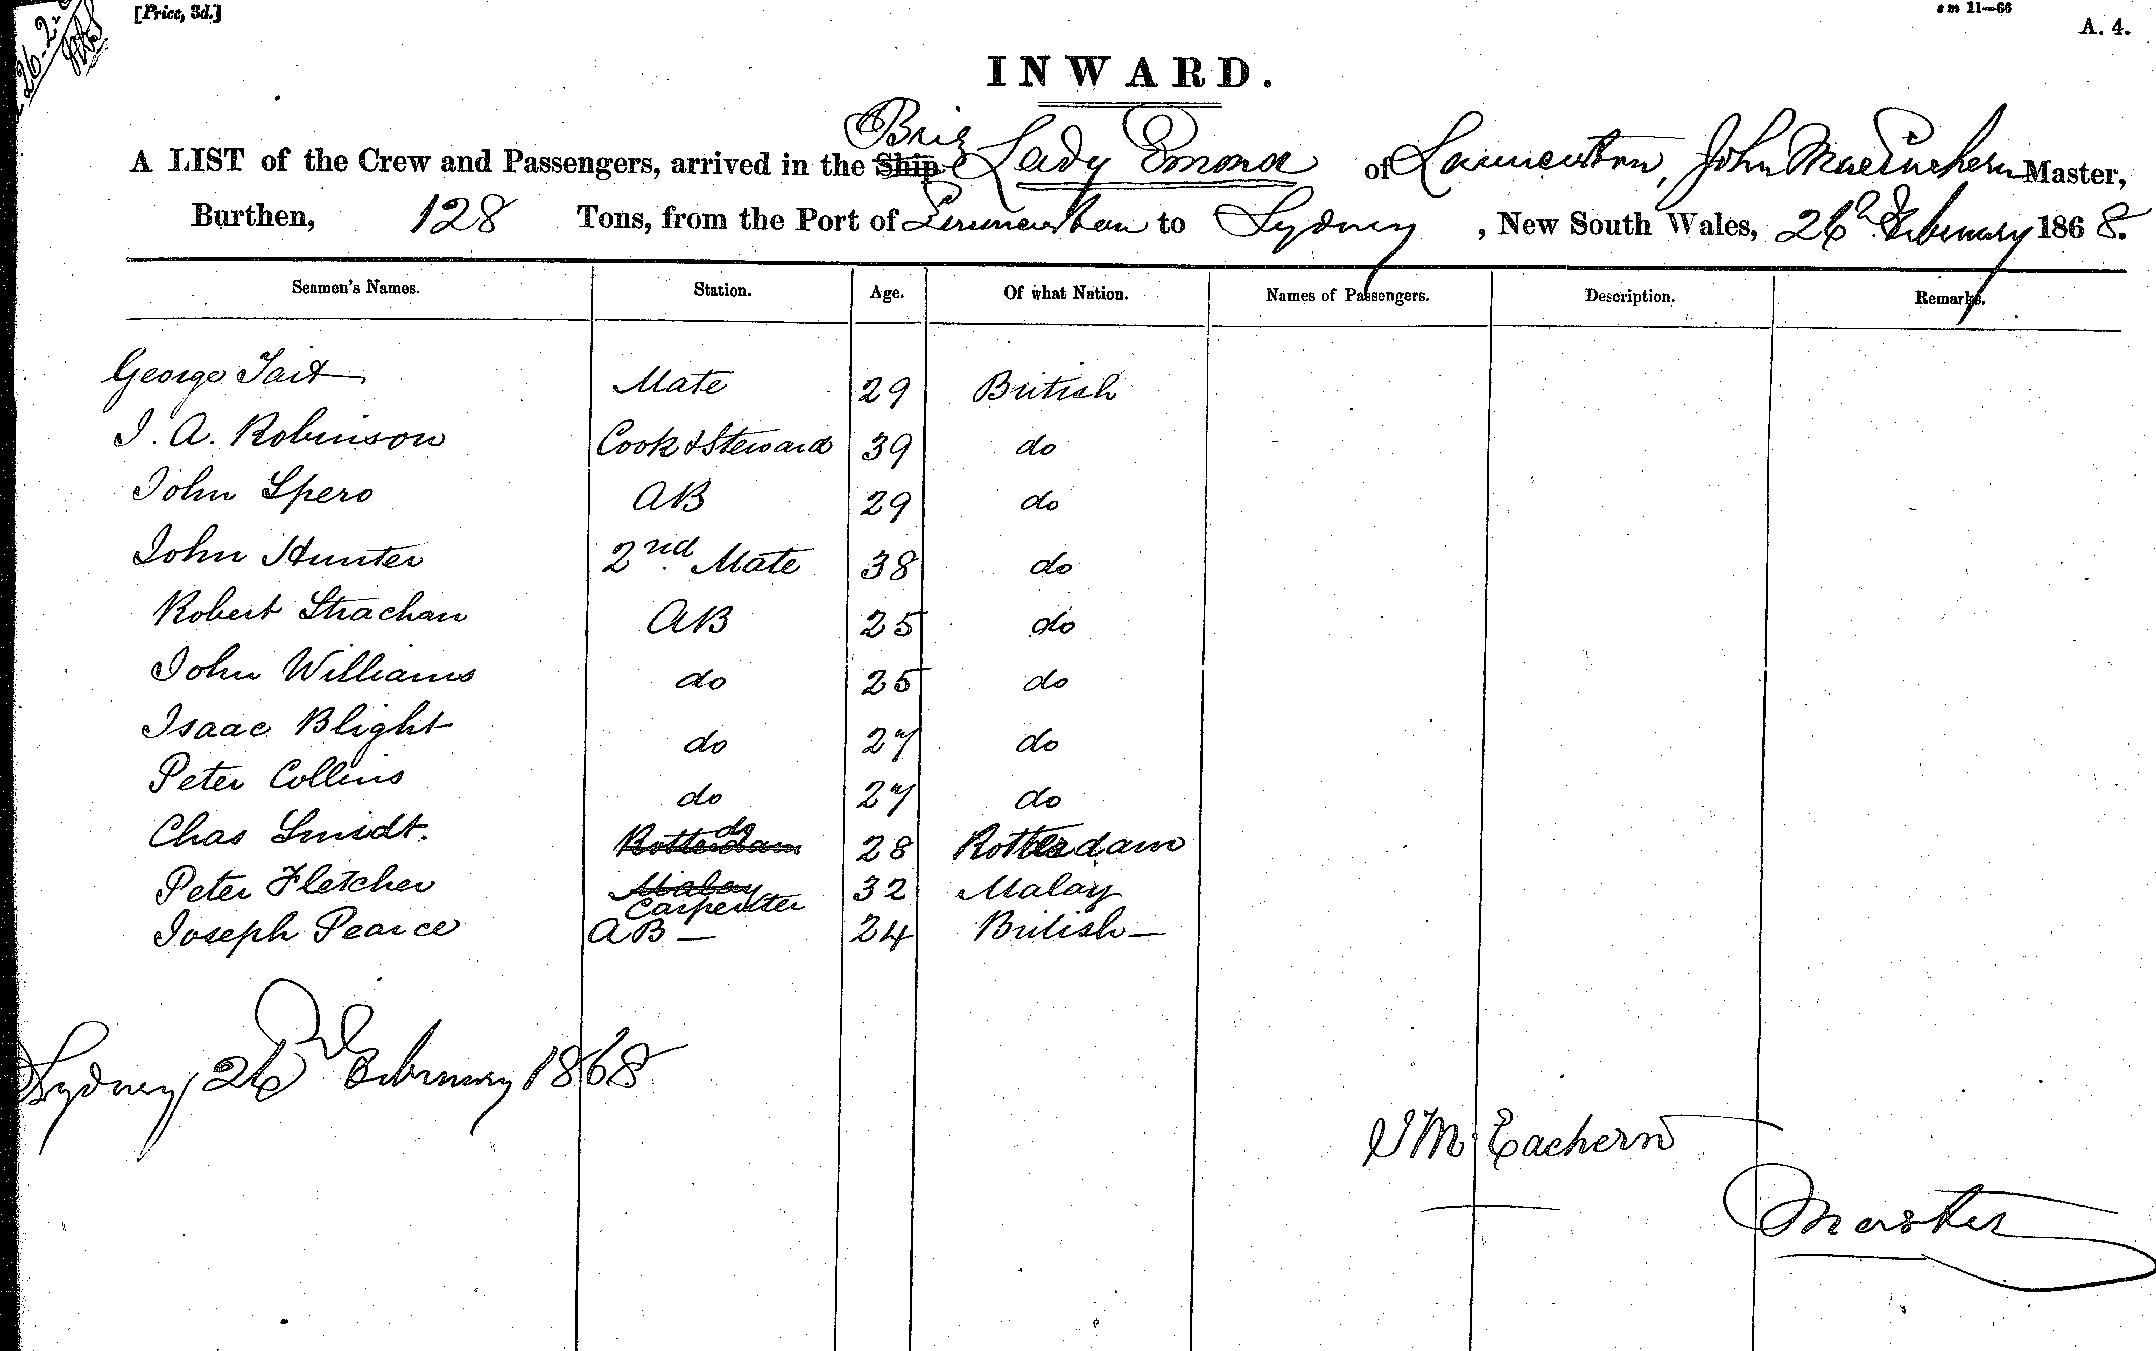 26-2-6
[Price, 3d.]
s m 11—66
A. 4.
INWARD.
Brig
A LIST of the Crew and Passengers, arrived in the Ship Lady Emma of Launceston, John MacEachern Master,
Burthen, 128 Tons, from the Port of Launceston to Sydney, New South Wales, 26th February 1868.
Seamen's Names. Station. Age. Of what Nation. Names of Passengers. Description. Remarks.
George Tait Mate 29 British
J. A. Robinson Cook & Steward 39 do
John Spero AB 29 do
John Hunter 2nd Mate 38 do
Robert Strachan AB 25 do
John Williams do 25 do
Isaac Blight do 27 do
Peter Collins do 27 do
Chas Smidt. Rotterdam do 28 Rotterdam
Peter Fletcher Malay Carpenter 32 Malay
Joseph Pearce AB — 24 British —
Sydney 26 February 1868
J McEachern
Master